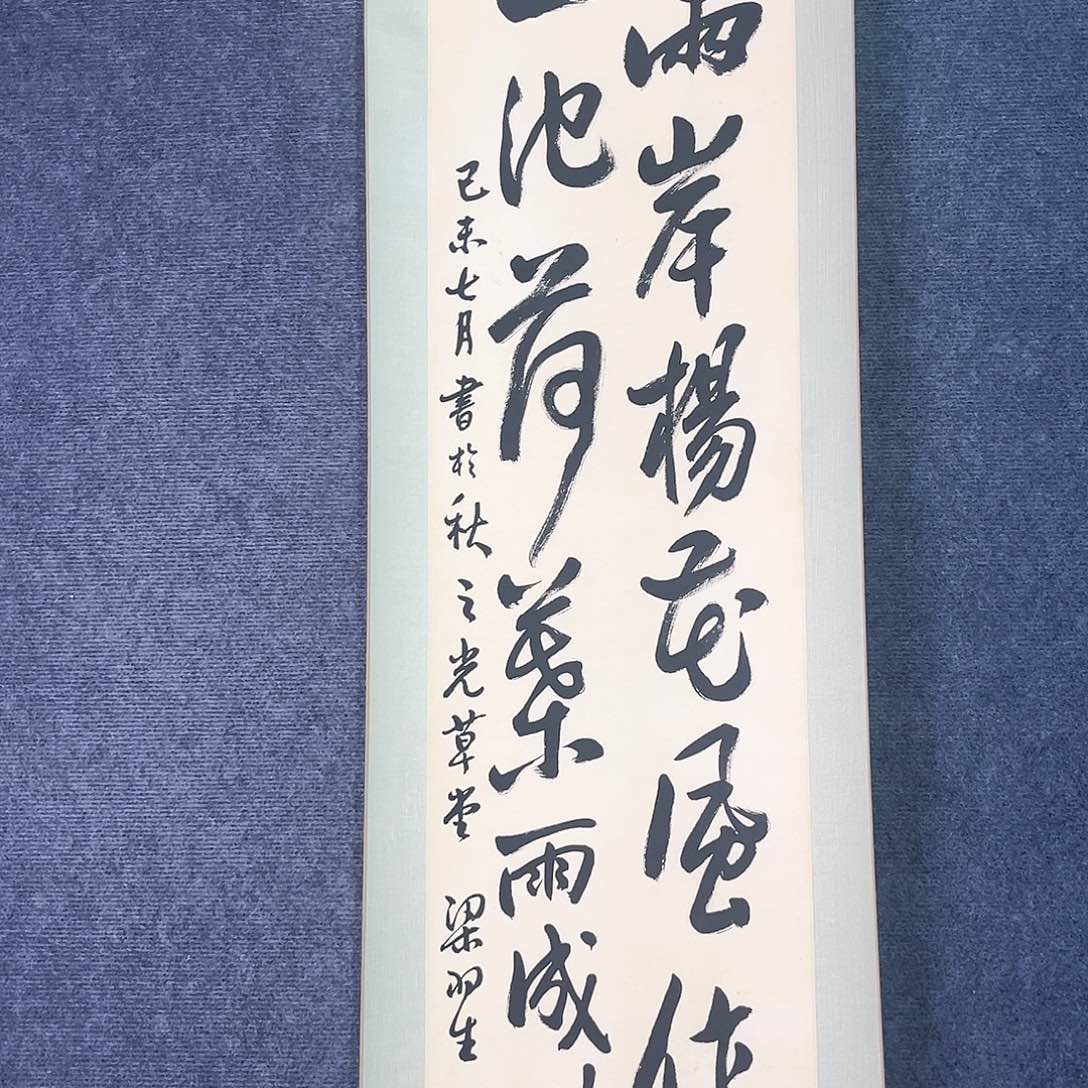 兩岸楊花風作
一池荷葉雨成
己未七月書於秋之光草堂 梁羽生